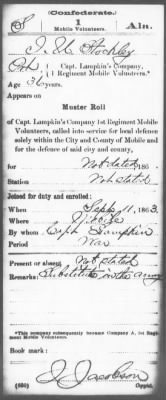 (Confederate.)
S 1 Mobile Volunteers. Ala.
Stockley
Pvt, Capt. Lampkin's Company,
1 Regiment Mobile Volunteers.*
Age 36 years.
Appears on
Muster Roll
of Capt. Lampkin's Company 1st Regiment Mobile
Volunteers, called into service for local defense
solely within the City and County of Mobile and
for the defence of said city and county,
for Not dated, 186 .
Station Not stated
Joined for duty and enrolled:
When Sept. 11, 1863.
Where Mobile
By whom Capt Lampkin
Period War
Present or absent Not stated
Remarks: Substitute in the army
*This company subsequently became Company A, 1st Regi-
ment Mobile Volunteers.
Book mark:
J. Jacobson
Copyist.